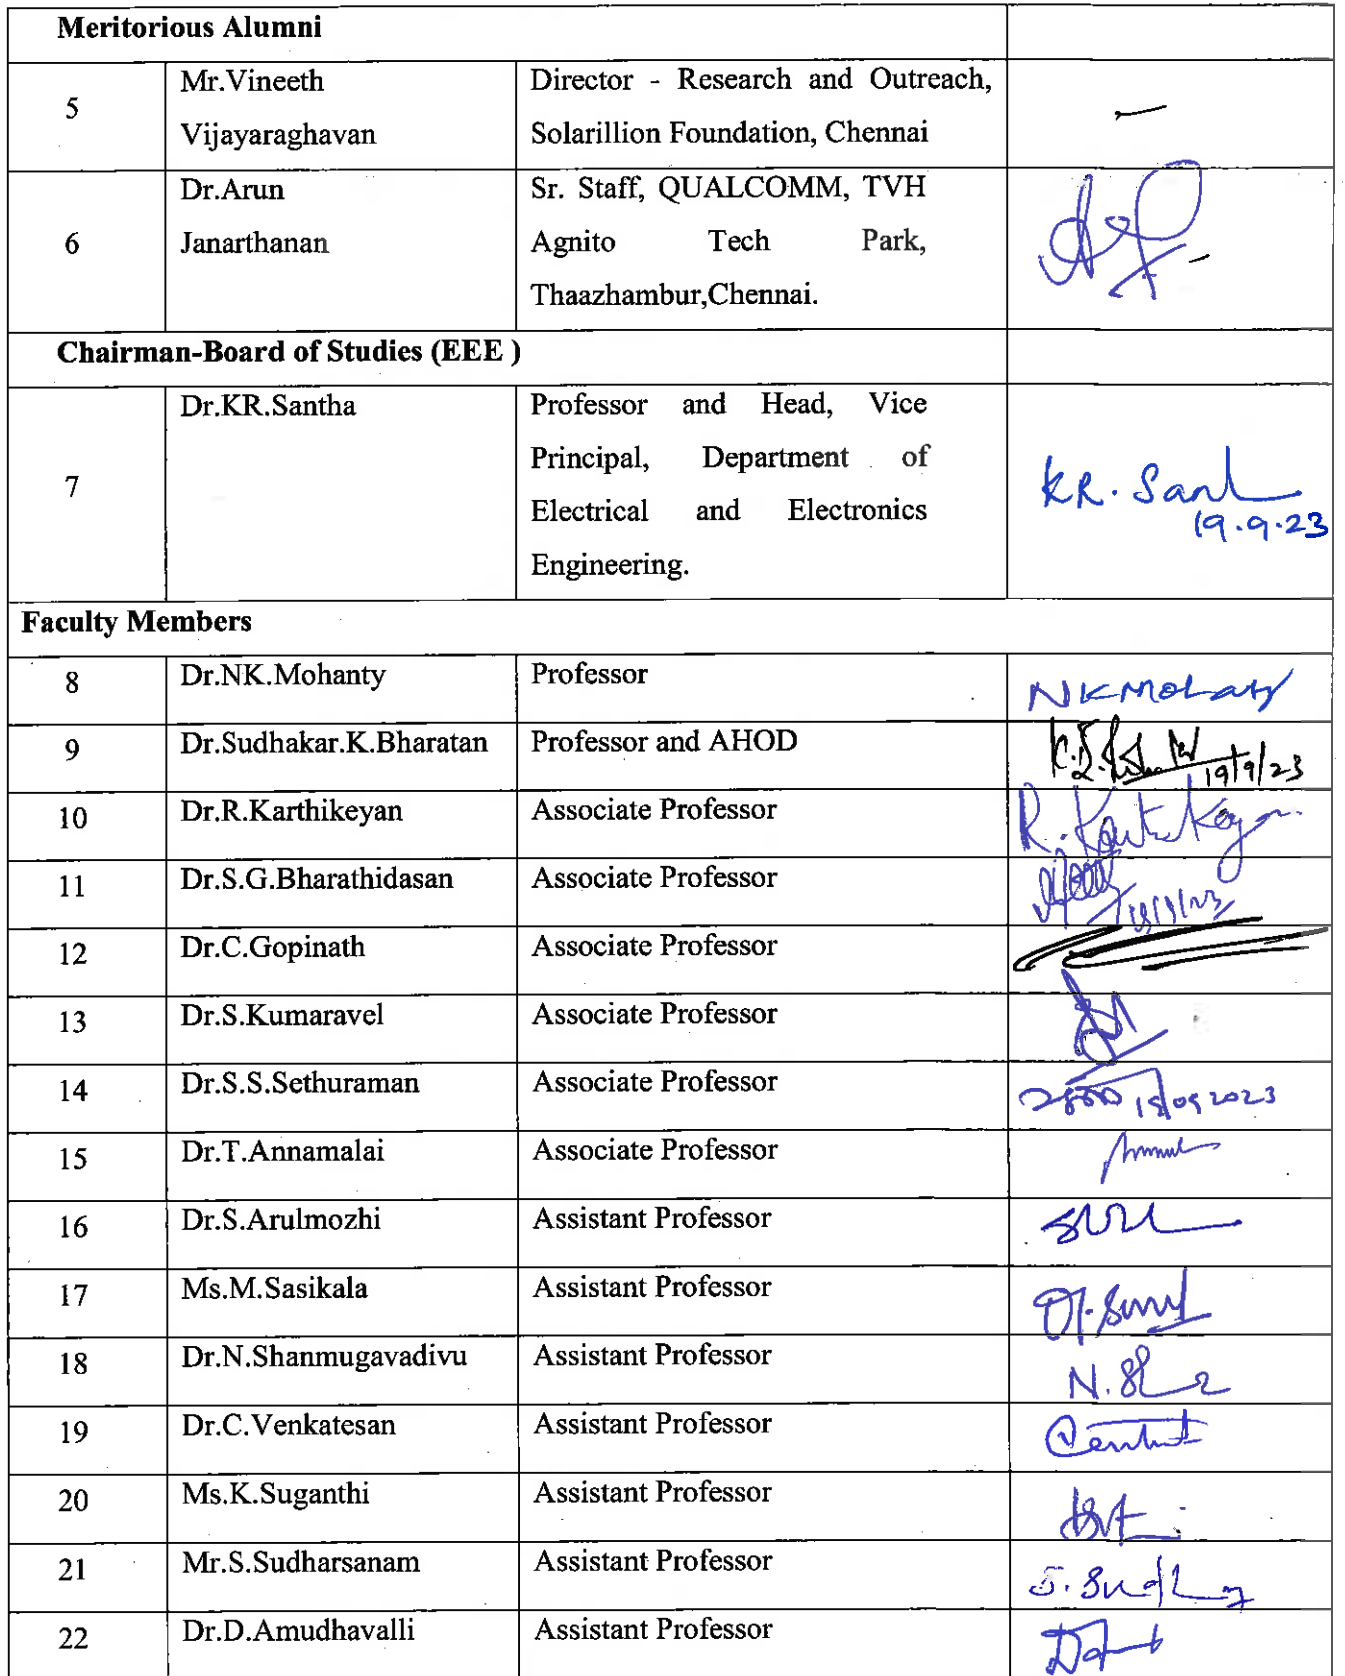 Meritorious Alumni
5 Mr.Vineeth Vijayaraghavan Director - Research and Outreach, Solarillion Foundation, Chennai —
6 Dr.Arun Janarthanan Sr. Staff, QUALCOMM, TVH Agnito Tech Park, Thaazhambur,Chennai.
Chairman-Board of Studies (EEE )
7 Dr.KR.Santha Professor and Head, Vice Principal, Department of Electrical and Electronics Engineering. KR. 19.9.23
Faculty Members
8 Dr.NK.Mohanty Professor NKMohanty
9 Dr.Sudhakar.K.Bharatan Professor and AHOD 19/9/23
10 Dr.R.Karthikeyan Associate Professor R. Karthikeyan
11 Dr.S.G.Bharathidasan Associate Professor
12 Dr.C.Gopinath Associate Professor
13 Dr.S.Kumaravel Associate Professor
14 Dr.S.S.Sethuraman Associate Professor
15 Dr.T.Annamalai Associate Professor
16 Dr.S.Arulmozhi Assistant Professor
17 Ms.M.Sasikala Assistant Professor
18 Dr.N.Shanmugavadivu Assistant Professor N.
19 Dr.C.Venkatesan Assistant Professor
20 Ms.K.Suganthi Assistant Professor
21 Mr.S.Sudharsanam Assistant Professor S.
22 Dr.D.Amudhavalli Assistant Professor